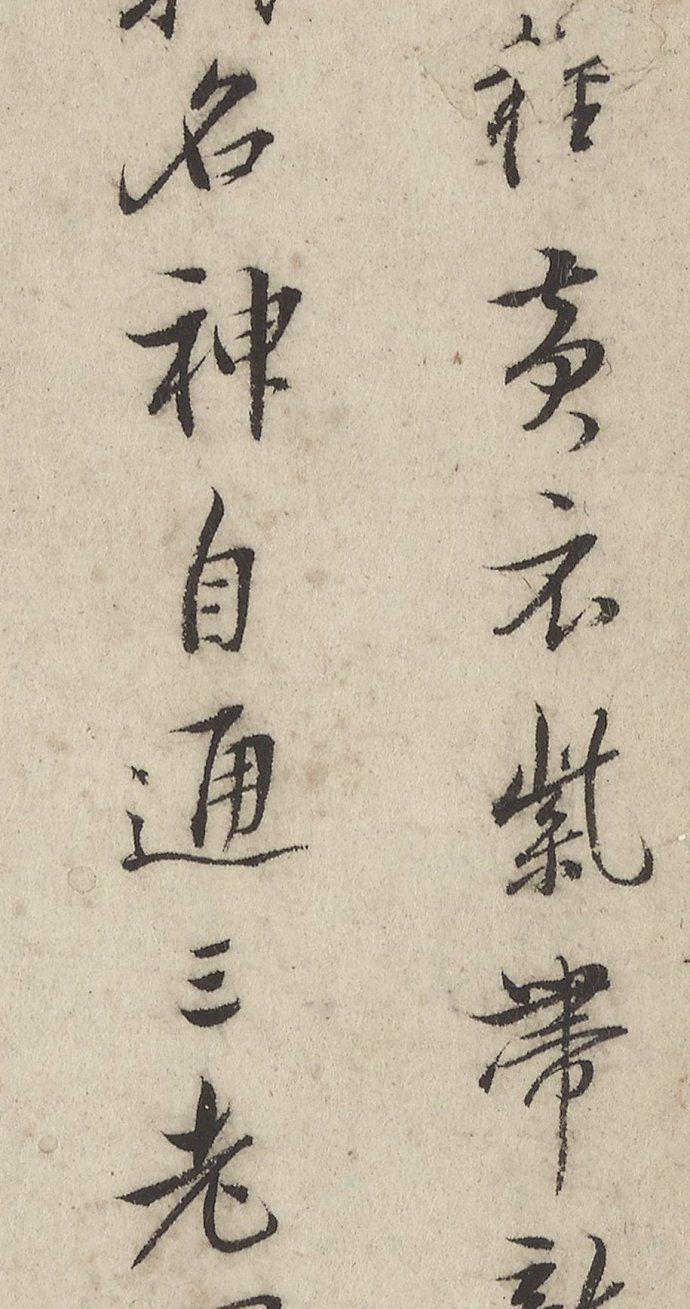 黄衣紫帶
名神自通三老